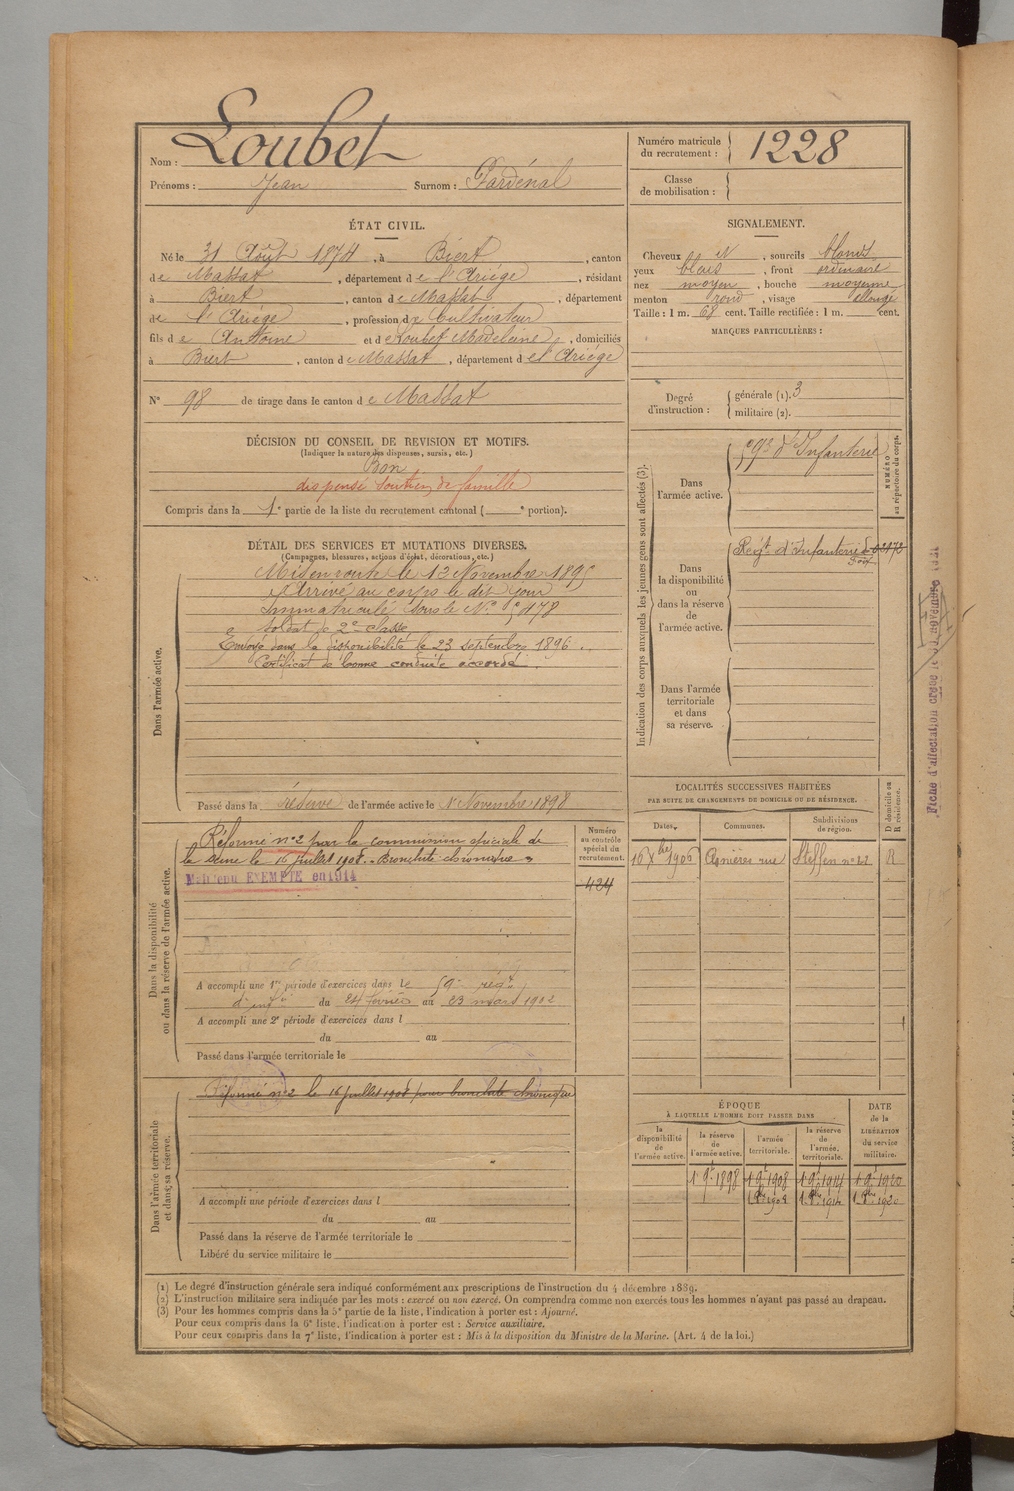 Nom : Loubet
Prénoms : Jean Surnom : Pardénal
Numéro matricule
du recrutement : 1228
Classe
de mobilisation :
ÉTAT CIVIL.
Né le 31 Août 1874, à Biert, canton
de Massat, département de l'Ariège, résidant
à Biert, canton de Massat, département
de l'Ariège, profession de Cultivateur
fils de Antoine et de Loubet Madeleine, domiciliés
à Biert, canton de Massat, département de l'Ariège
N° 98 de tirage dans le canton de Massat
SIGNALEMENT.
Cheveux N, sourcils blonds
yeux bleus, front ordinaire
nez moyen, bouche moyenne
menton rond, visage allongé
Taille : 1 m. 68 cent. Taille rectifiée : 1 m. cent.
MARQUES PARTICULIÈRES :
Degré
d'instruction :
générale (1). 3
militaire (2).
DÉCISION DU CONSEIL DE REVISION ET MOTIFS.
(Indiquer la nature des dispenses, sursis, etc.)
Bon
dispensé soutien de famille
Compris dans la 1e partie de la liste du recrutement cantonal ( e portion).
DÉTAIL DES SERVICES ET MUTATIONS DIVERSES.
(Campagnes, blessures, actions d'éclat, décorations, etc.)
Dans l'armée active.
Mis en route le 13 Novembre 1895
Arrivé au corps le dit jour
Immatriculé sous le N° 5178
Soldat de 2e classe
Envoyé dans la disponibilité le 23 septembre 1896.
Certificat de bonne conduite accordé.
Passé dans la réserve de l'armée active le 1er Novembre 1898
Indication des corps auxquels les jeunes gens sont affectés (3).
Dans
l'armée active.
59e d'Infanterie
NUMÉRO
au répertoire du corps.
Dans
la disponibilité
ou
dans la réserve
de
l'armée active.
Régt d'Infanterie de
Foix
02172
Dans l'armée
territoriale
et dans
sa réserve.
Fiche d'affectation créée le novembre
Dans la disponibilité
ou dans la réserve de l'armée active.
Réformé n° 2 par la commission spéciale de
la Seine le 16 juillet 1908. - Bronchite chronique
Maintenu EXEMPTE en 1914
Numéro
au contrôle
spécial du
recrutement.
424
A accompli une 1re période d'exercices dans le 59e régt
d'infie du 24 février au 23 mars 1902
A accompli une 2e période d'exercices dans l
du au
Passé dans l'armée territoriale le
LOCALITÉS SUCCESSIVES HABITÉES
PAR SUITE DE CHANGEMENTS DE DOMICILE OU DE RÉSIDENCE.
Dates. Communes. Subdivisions
de région.
D domicile ou
R résidence.
16 Xbre 1906 Asnières rue Steffen n° 22 R
Dans l'armée territoriale
et dans sa réserve.
Réformé n° 2 le 16 juillet 1908 pour bronchite chronique
A accompli une période d'exercices dans l
du au
Passé dans la réserve de l'armée territoriale le
Libéré du service militaire le
ÉPOQUE
À LAQUELLE L'HOMME DOIT PASSER DANS
DATE
de la
LIBÉRATION
du service
militaire.
la
disponibilité
de
l'armée active.
la réserve
de
l'armée active.
l'armée
territoriale.
la réserve
de
l'armée
territoriale.
1 9t 1898 1 9t 1908 1 9t 1914 1 9t 1920
1 8bre 1908 1 8bre 1914 1 8bre 1920
(1) Le degré d'instruction générale sera indiqué conformément aux prescriptions de l'instruction du 4 décembre 1889.
(2) L'instruction militaire sera indiquée par les mots : exercé ou non exercé. On comprendra comme non exercés tous les hommes n'ayant pas passé au drapeau.
(3) Pour les hommes compris dans la 5e partie de la liste, l'indication à porter est : Ajourné.
Pour ceux compris dans la 6e liste, l'indication à porter est : Service auxiliaire.
Pour ceux compris dans la 7e liste, l'indication à porter est : Mis à la disposition du Ministre de la Marine. (Art. 4 de la loi.)